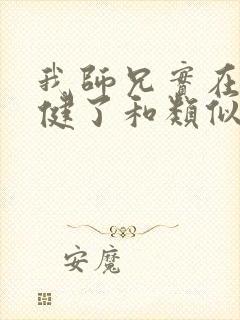 我師兄實在
健了和類似
安魔